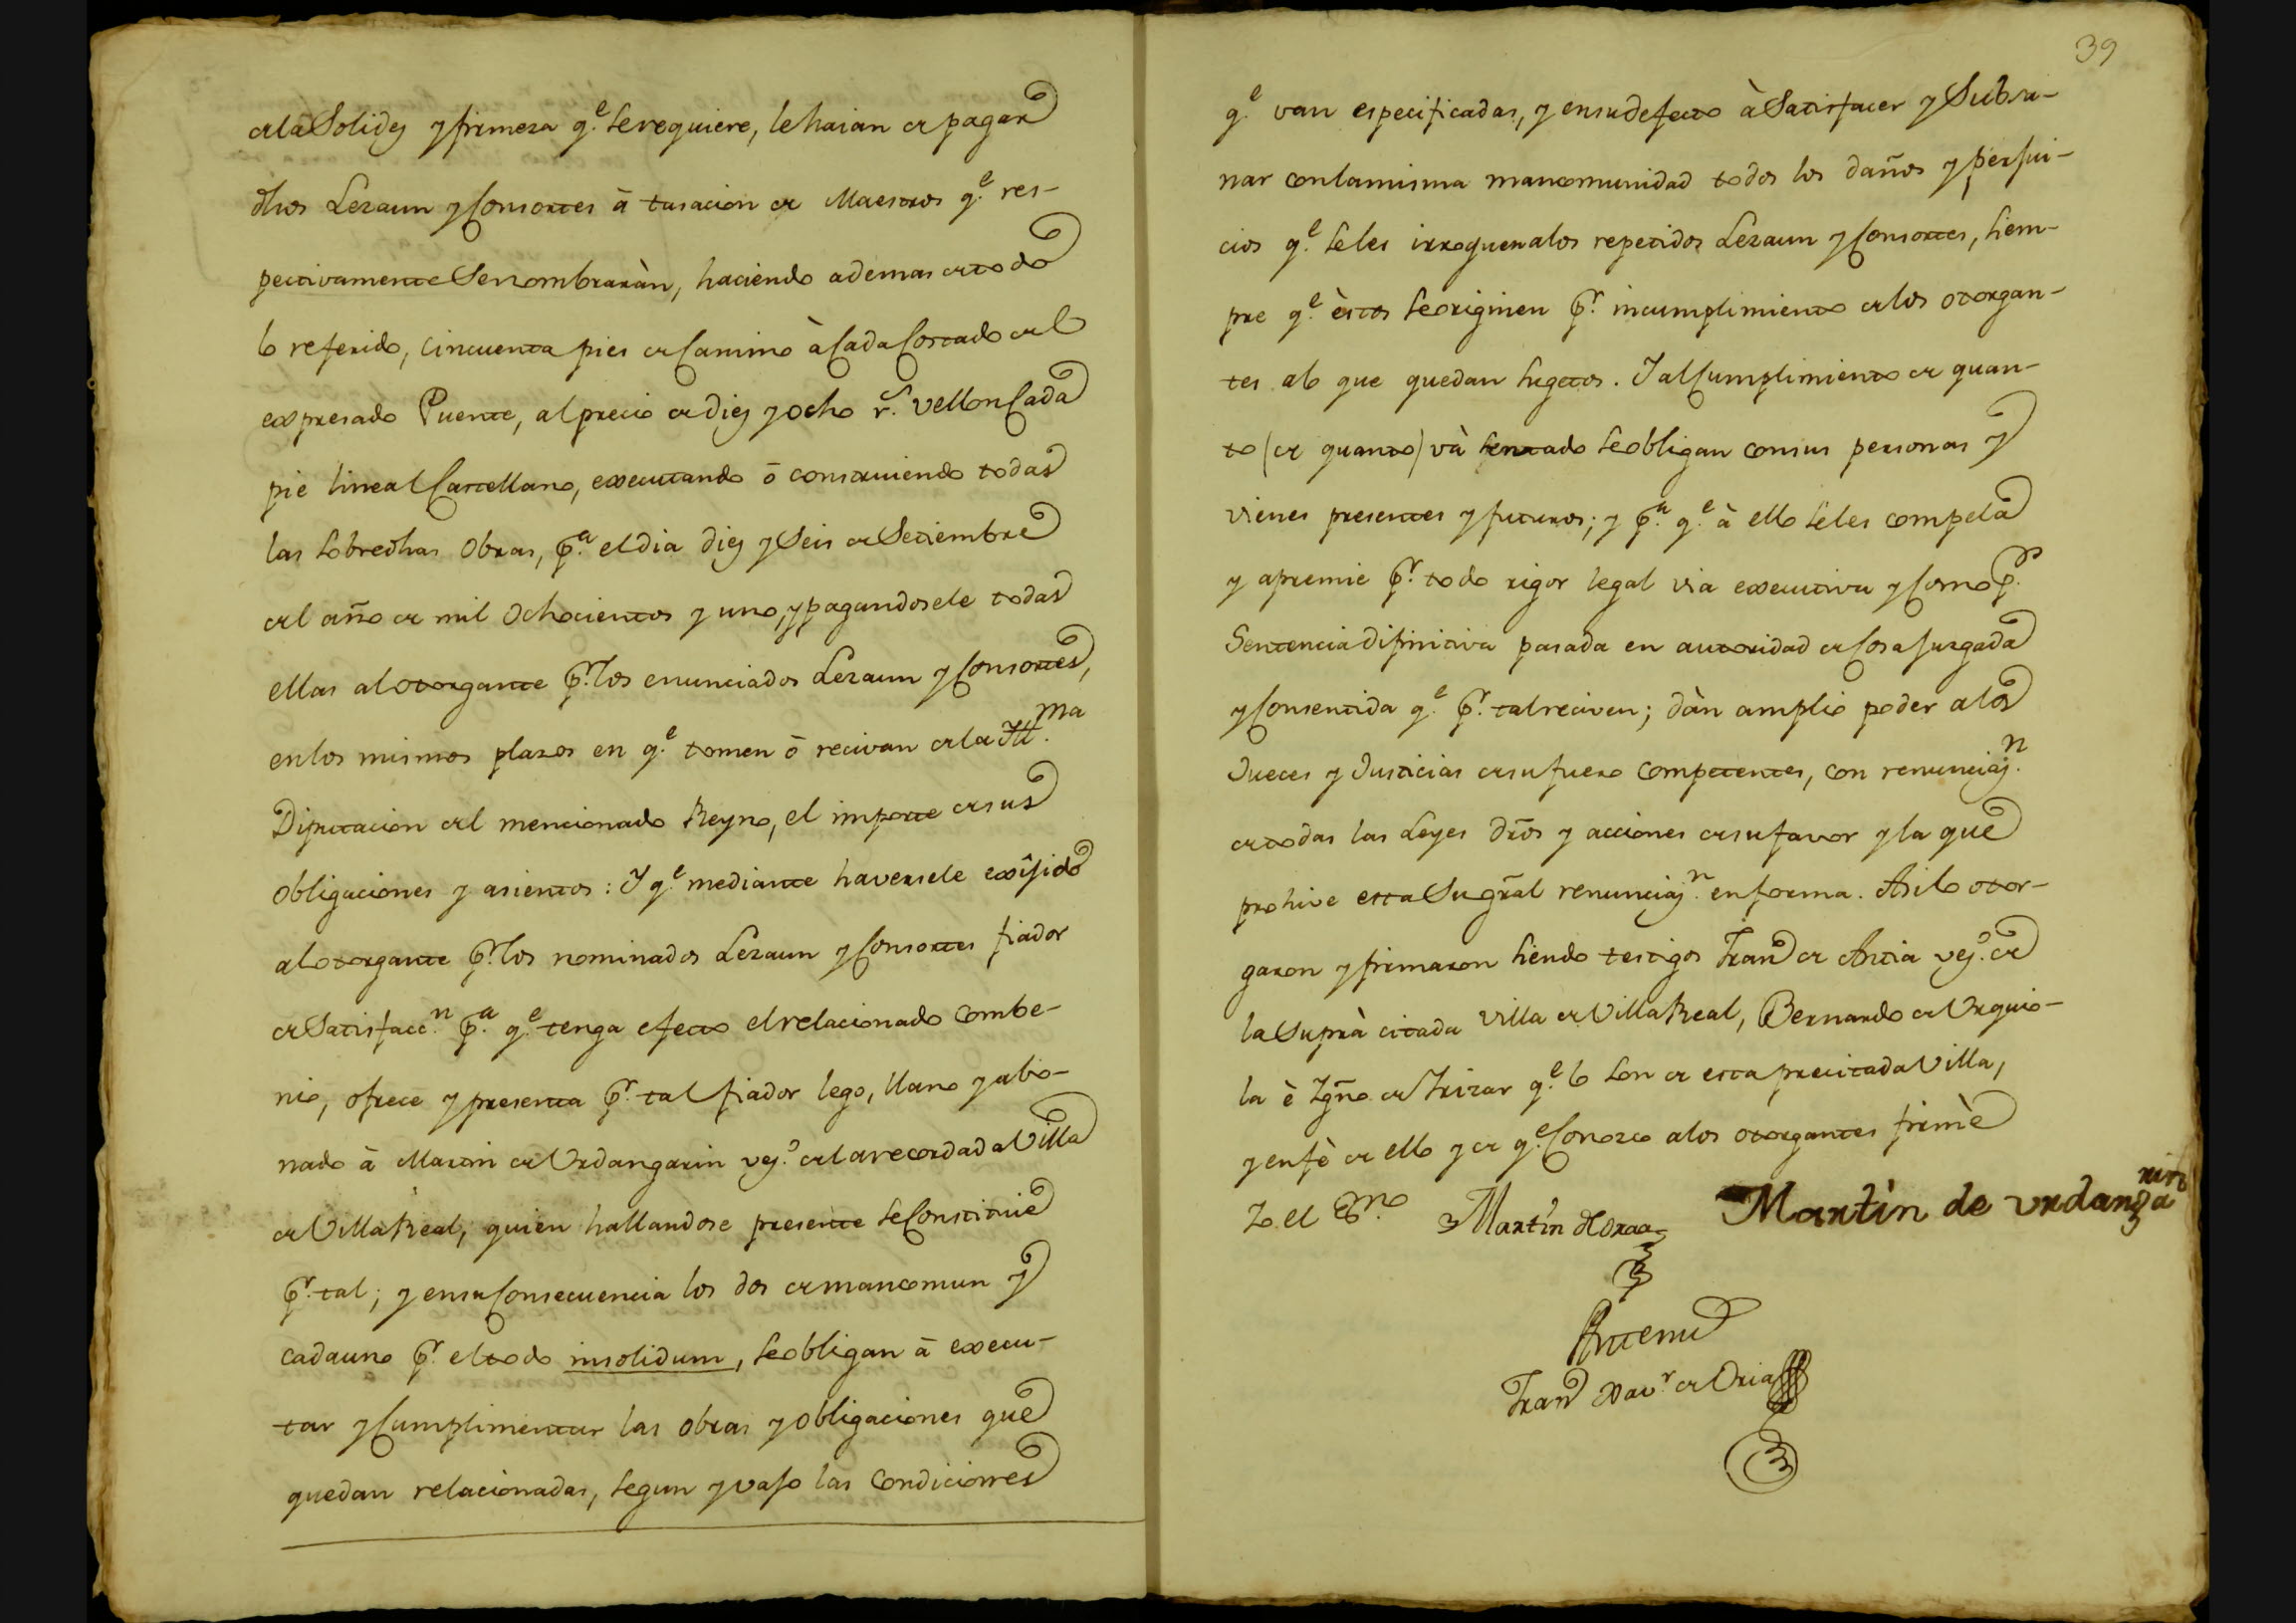 de la Solidez y firmeza q.e se requiere, le haian de pagar
dhos Lezaun y Consortes â tasacion de Maestros q.e res-
pectivamente se nombraràn, haciendo ademas de todo
lo referido, cincuenta pies de Camino à Cada Costado del
expresado Puente, al precio de diez y ocho r.s vellon Cada
pie lineal Castellano, executando ô construiendo todas
las sobredhas Obras, p.a el dia diez y Seis de Setiembre
del año de mil Ochocientos y uno, y pagandosele todas
ellas al otorgante p.r los enunciados Lezaun y Consortes,
en los mismos plazos en q.e tomen ô recivan de la Ill.ma
Diputacion del mencionado Reyno, el importe de sus
obligaciones y asientos: Y q.e mediante haversele exîjido
al otorgante p.r los nominados Lezaun y Consortes fiador
de Satisfacc.n p.a q.e tenga efecto el relacionado combe-
nio, ofrece y presenta p.r tal fiador lego, llano y abo-
nado â Martin de Urdangarin vez.o de la recordada Villa
de Villa Real, quien hallandose presente se Constituie
p.r tal; y en su Consecuencia los dos de mancomun y
cada uno p.r el todo insolidum, se obligan â execu-
tar y Cumplimentar las obras y obligaciones que
quedan relacionadas, segun y vajo las Condiciones
39
q.e van especificadas, y en su defecto à Satisfacer y Subsa-
nar con la misma mancomunidad todos los daños y perjui-
cios q.e se les irroguen a los repetidos Lezaun y Consortes, siem-
pre q.e èstos se originen p.r incumplimiento de los otorgan-
tes a lo que quedan sugetos. Y al Cumplimiento de quan-
to (de quanto) và sentado se obligan con sus personas y
vienes presentes y futuros; y p.a q.e à ello se les compela
y apremie p.r todo rigor legal via executiva y Como p.r
Sentencia difinitiva pasada en autoridad de Cosa Juzgada
y Consentida q.e p.r tal reciven; dàn amplio poder a los
Jueces y Justicias de su fuero Competentes, con renunciaz.n
de todas las Leyes dr̃os y acciones de su favor y la que
prohive esta Su gr̃al renunciaz.n en forma. Asi lo otor-
garon y firmaron siendo testigos Fran.co de Antia vez.o de
la Suprà citada Villa de Villa Real, Bernardo de Urquio-
la è Ygñ.o de Yrizar q.e lo son de esta precitada Villa,
y en fè de ello y de q.e Conozco a los otorgantes firmè
Yo el Es.no Martín de Oraa Martìn de vrdanga
rin
Antemi
Fran.co Xav.r de Oria